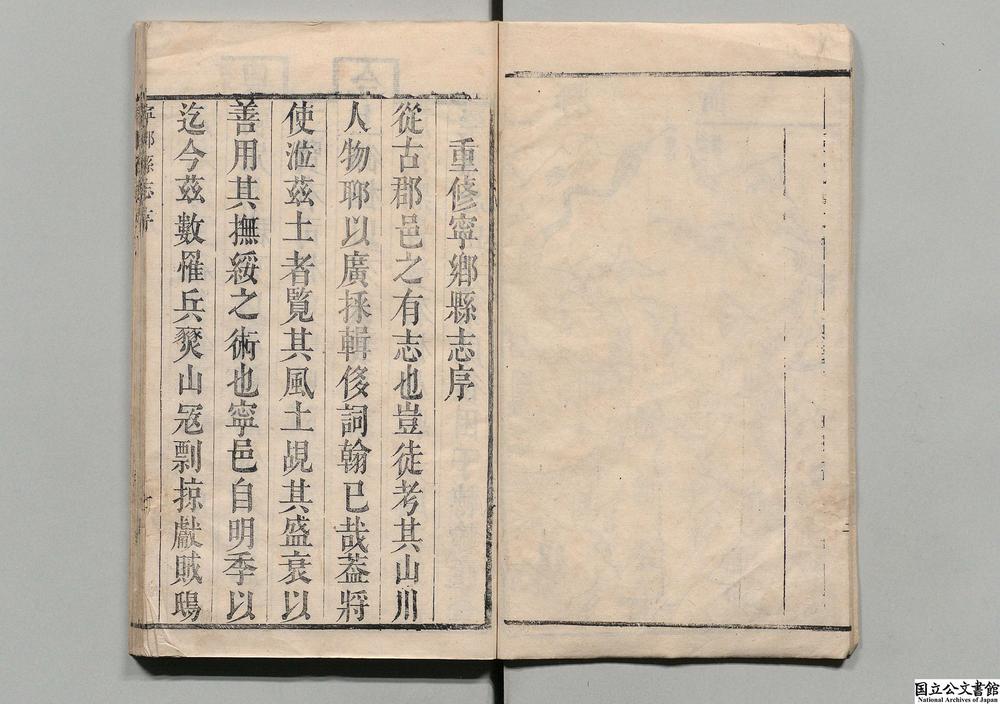 重修寧鄉縣志序
從古郡邑之有志也豈徒考其山川
人物耶以廣採輯侈詞翰已哉葢將
使涖茲土者覽其風土覘其盛衰以
善用其撫綏之術也寧邑自明季以
迄今茲數罹兵燹山冦剽掠獻賊鴟
寧鄉縣志序
国立公文書館
National Archives of Japan